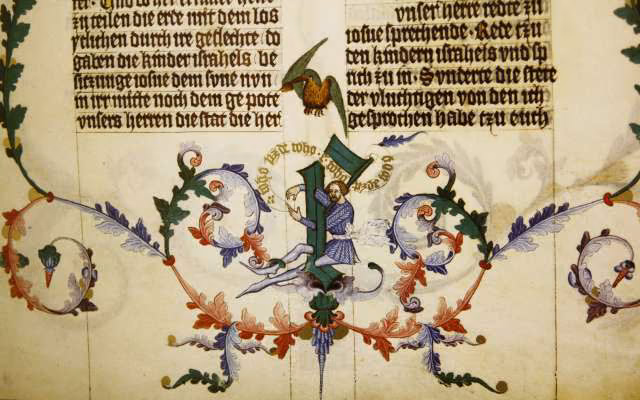 zu teilen die erde mit dem los
ylichen durch ire geslechte do
gaben die kinder israhels be
sitzunge iosue dem sune nun
in irr mitte noch dem ge pote
vnsers herren die stat die her
vnser herre redte czu
iosue sprechende. Rede czu
den kindern israhels vnd sp
rich zu in. Sunderte die stete
der vluchtigen von den ich
gesprochen habe czu euch